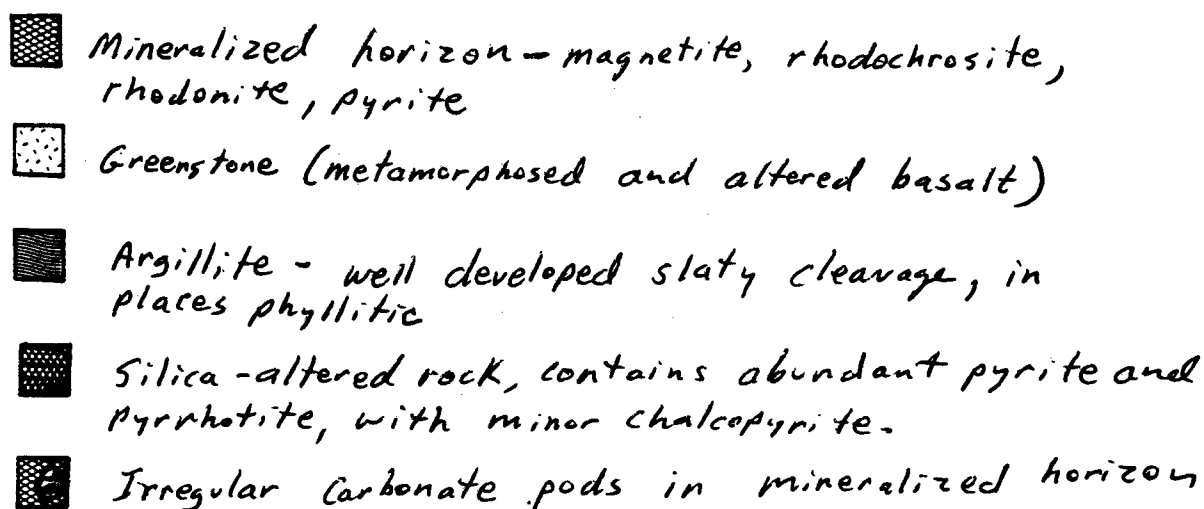 Mineralized horizon - magnetite, rhodochrosite,
rhodonite, pyrite
Greenstone (metamorphosed and altered basalt)
Argillite - well developed slaty cleavage, in
places phyllitic
Silica-altered rock, contains abundant pyrite and
pyrrhotite, with minor chalcopyrite.
Irregular carbonate pods in mineralized horizon